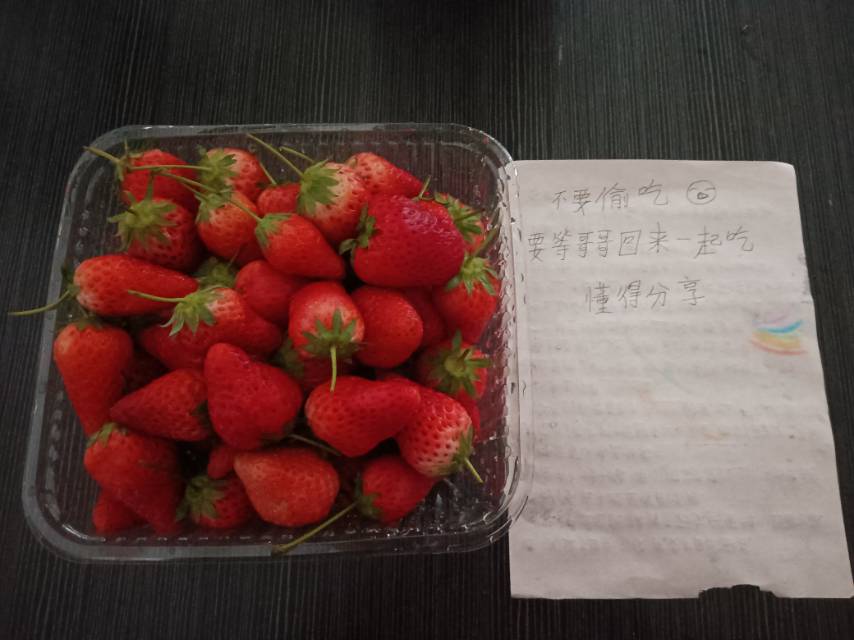 不要偷吃
要等哥哥回来一起吃
懂得分享